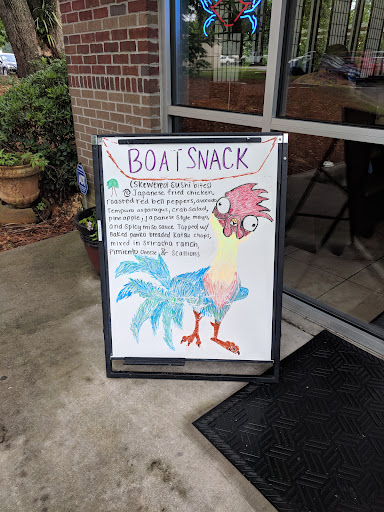 BOAT SNACK
(Skewered Sushi bites)
@ Japanese fried chicken,
roasted red bell peppers, avocado
Tempura asparagus, crab salad,
pineapple, Japanese style mayo,
and Spicy miso sauce Topped w/
Baked panko breaded Katsu chops,
mixed in Sriracha ranch,
Pimiento cheese, & scallions